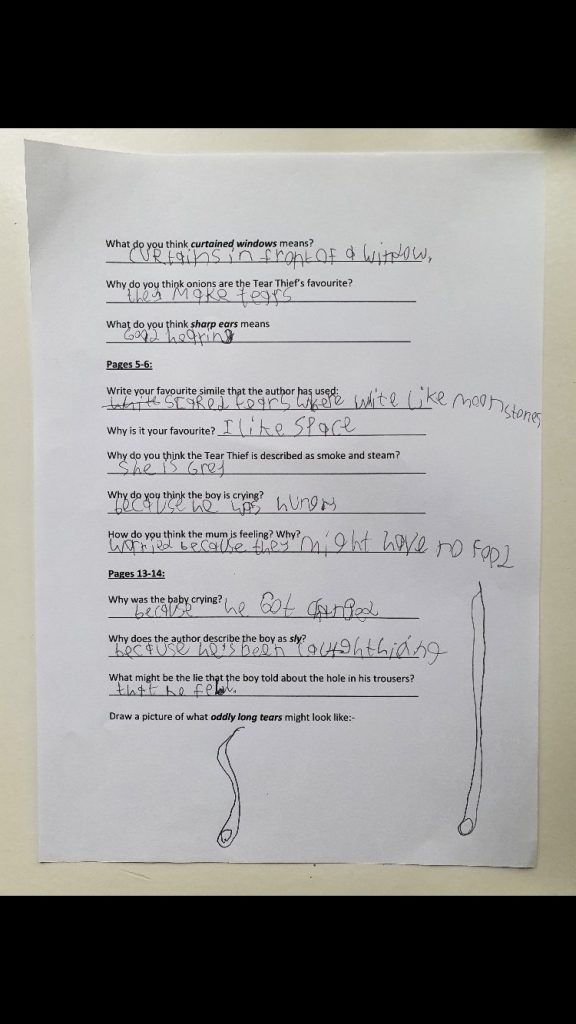 What do you think curtained windows means?
CURtains in front of a window.
Why do you think onions are the Tear Thief's favourite?
they Make tears
What do you think sharp ears means
Good hearing
Pages 5-6:
Write your favourite simile that the author has used:
scared tears where write like moonstones
Why is it your favourite? I like space
Why do you think the Tear Thief is described as smoke and steam?
She is Grey
Why do you think the boy is crying?
because he was hungry
How do you think the mum is feeling? Why?
worried because they might have no food
Pages 13-14:
Why was the baby crying?
because he Got changed
Why does the author describe the boy as sly?
because he's been hiding
What might be the lie that the boy told about the hole in his trousers?
that he fell.
Draw a picture of what oddly long tears might look like:-